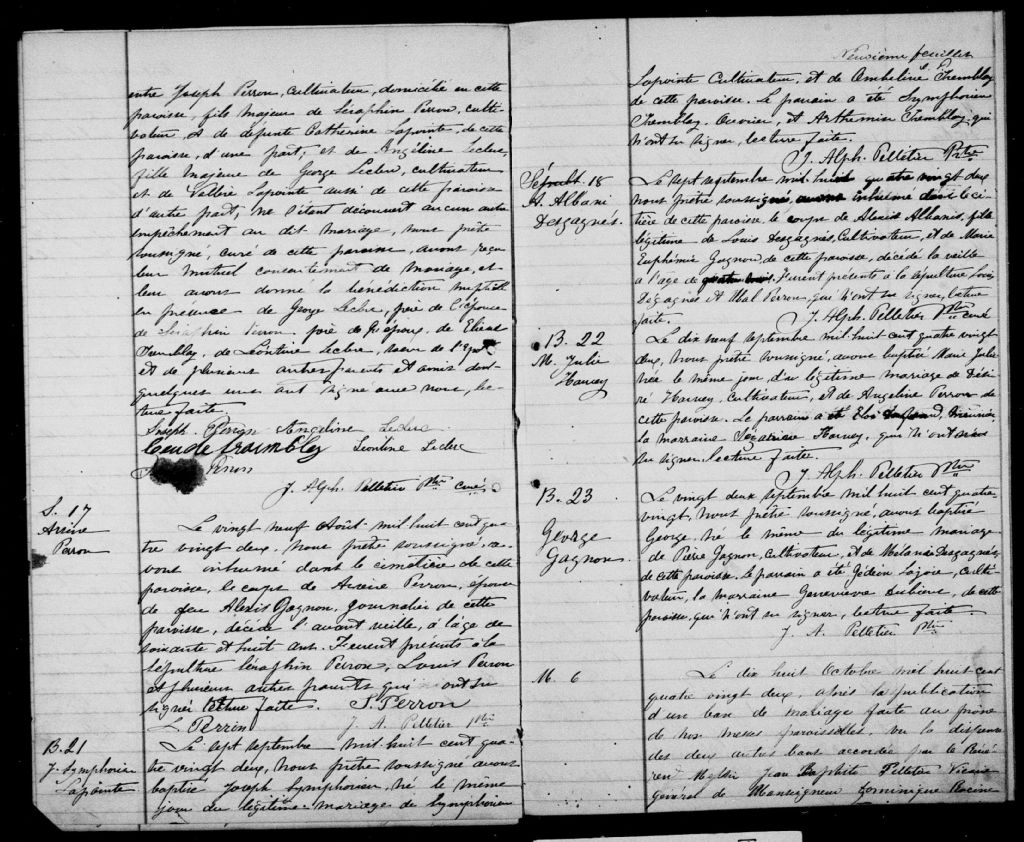 entre Joseph Perron, cultivateur, domicilié en cette
paroisse, fils majeur de Séraphin Perron, culti-
vateur, & de defunte Catherine Lapointe, de cette
paroisse, d'une part; et de Angéline Leclerc,
fille majeure de George Leclerc, cultivateur
et de Lapointe aussi de cette paroisse
d'autre part; ne s'étant découvert aucun autre
empêchement au dit mariage, nous prêtre
soussigné, curé de cette paroisse, avons reçu
leur mutuel consentement de mariage, et
leur avons donné la bénédiction nuptiale
en présence de George Leclerc, père de l'épouse
de Séraphin Perron père de l'époux, de
Tremblay, de Léontine Leclerc, soeur de
et de plusieurs autres parents et amis dont
quelques uns ont signé avec nous, lec-
ture faite.
Joseph Perron Angeline Leclerc
Tremblay Leontine Leclerc
Perron
J. Alph. Pelletier Ptre curé
S. 17
Perron
Le vingt neuf Août mil huit cent qua-
tre vingt deux, nous prêtre soussigné, a-
vons inhumé dans le cimetière de cette
paroisse, le corps de Perron, épouse
de feu Alexis Gagnon, journalier de cette
paroisse, décédé l'avant veille, à l'âge de
soixante et huit ans. Furent présents à la
sépulture Séraphin Perron, Louis Perron
et plusieurs autres parents qui ont su
signer lecture faite. S. Perron
L. Perrin J. A. Pelletier Ptre
B. 21
J. Symphorien
Lapointe
Le sept septembre mil huit cent qua-
tre vingt deux, nous prêtre soussigné avons
baptisé Joseph Symphorien, né le même
jour du légitime mariage de Symphorien
Neuvième feuillet
Lapointe Cultivateur, et de Ombeline Tremblay
de cette paroisse. Le parrain a été Symphorien
Tremblay, Ouvrier, et Arthemise Tremblay, qui
n'ont su signer, lecture faite.
J. Alph. Pelletier Ptre
Sépult. 18
A. Albani
Desgagnés.
Le sept septembre mil huit quatre vingt deux
nous prêtre soussigné, avons inhumé dans le ci-
tière de cette paroisse, le corps de Alexis Albanis, fils
légitime de Louis Desgagnés, Cultivateur, et de Marie
Euphémie Gagnon, de cette paroisse, décédé la veille
à l'âge de. Furent présents à la sépulture Louis
Desgagnés et Perron, qui n'ont su signer, lecture
faite. J. Alph. Pelletier Ptre curé
B. 22
M. Julie
Harvey
Le dix neuf septembre mil huit cent quatre vingt
deux, Nous prêtre soussigné, avons baptisé Marie Julie
née le même jour, d'un légitime mariage de Dési-
ré Harvey, Cultivateur, et de Angéline Perron de
cette paroisse. Le parrain a été
la marraine Harvey, qui n'ont
su signer, lecture faite.
J. Alph. Pelletier Ptre
B. 23
George
Gagnon.
Le vingt deux septembre mil huit cent quatre
vingt, Nous prêtre soussigné, avons baptisé
George, né le même du légitime mariage
de Pierre Gagnon, Cultivateur, et de Desgagnés,
de cette paroisse. Le parrain a été Gédéon Lajoie, culti-
vateur, la marraine Geneviève, de cette
paroisse, qui n'ont su signer, lecture faite.
J. A. Pelletier Ptre
M. 6
Le dix huit Octobre mil huit cent
quatre vingt deux, après la publication
d'un ban de mariage faite au prône
de nos messes paroissales, vu la dispense
des deux autres bans accordée par le Révé-
rend Jean Baptiste Pelletier Vicaire
général de Monseigneur Dominique Racine